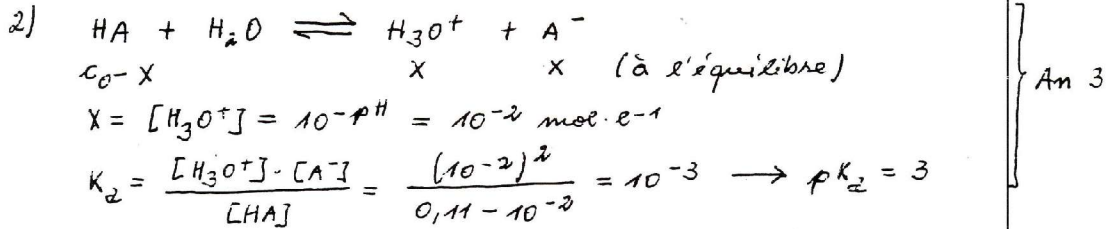 2) HA + H₂O ⇌ H₃O⁺ + A⁻
C₀-X X X (à l'équilibre)
X = [H₃O⁺] = 10^-pH = 10^-2 mol·l-1
An 3
Ka = [H₃O⁺]·[A⁻] / [HA] = (10^-2)^2 / 0,11 - 10^-2 = 10^-3 → pKa = 3